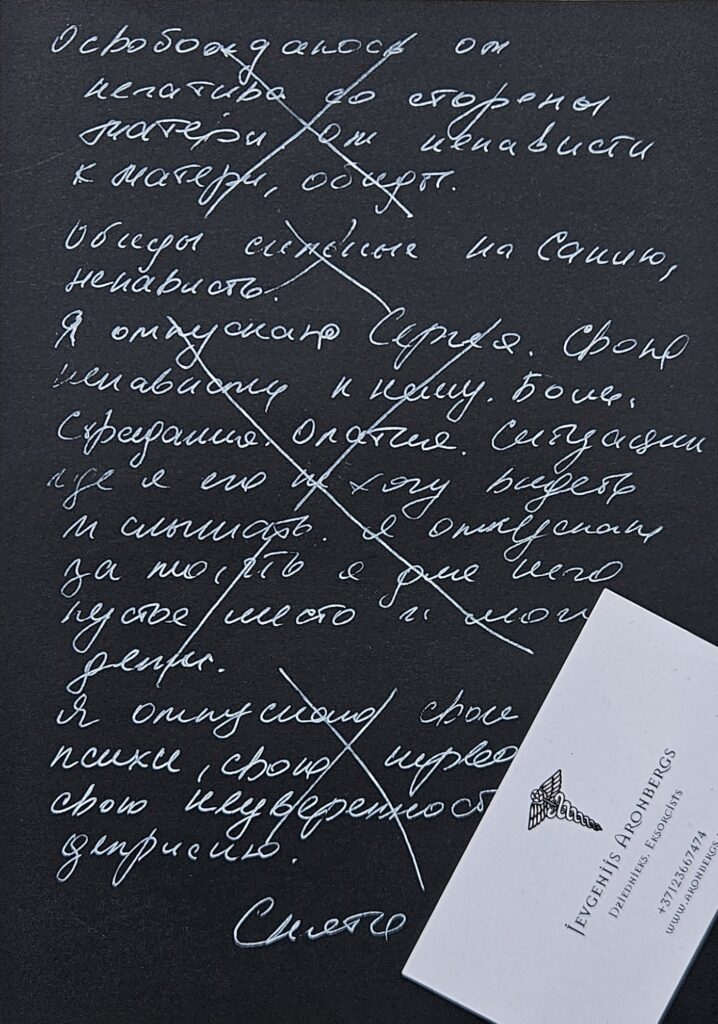 Освобождаюсь от
негатива со стороны
матери от ненависти
к матери, обиды.
Обиды сильные на Санию,
ненависть.
Я отпускаю Сергея. Свою
ненависть к нему. Боль.
Страдания. Апатия. Ситуации
где я его не хочу видеть
и слышать. Я отпускаю
за то, что я для него
пустое место и мои
дети.
Я отпускаю свои
психи, свою нерво
свою неуверенность
деприсию.
Снято
JEVGENIJS ARONBERGS
DZIEDNIEKS, EKSORCISTS
+37123667474
www.aronbergs